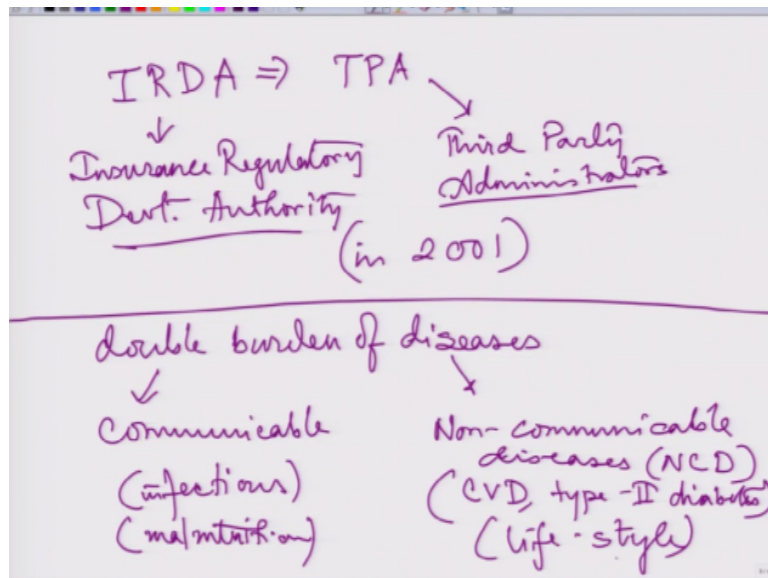 IRDA ⇒ TPA
Insurance Regulatory
Devt. Authority
Third Party
Administrators
(in 2001)
double burden of diseases
Communicable
(infections)
(malnutrition)
Non-communicable
diseases (NCD)
(CVD, type-II diabetes)
(life-style)